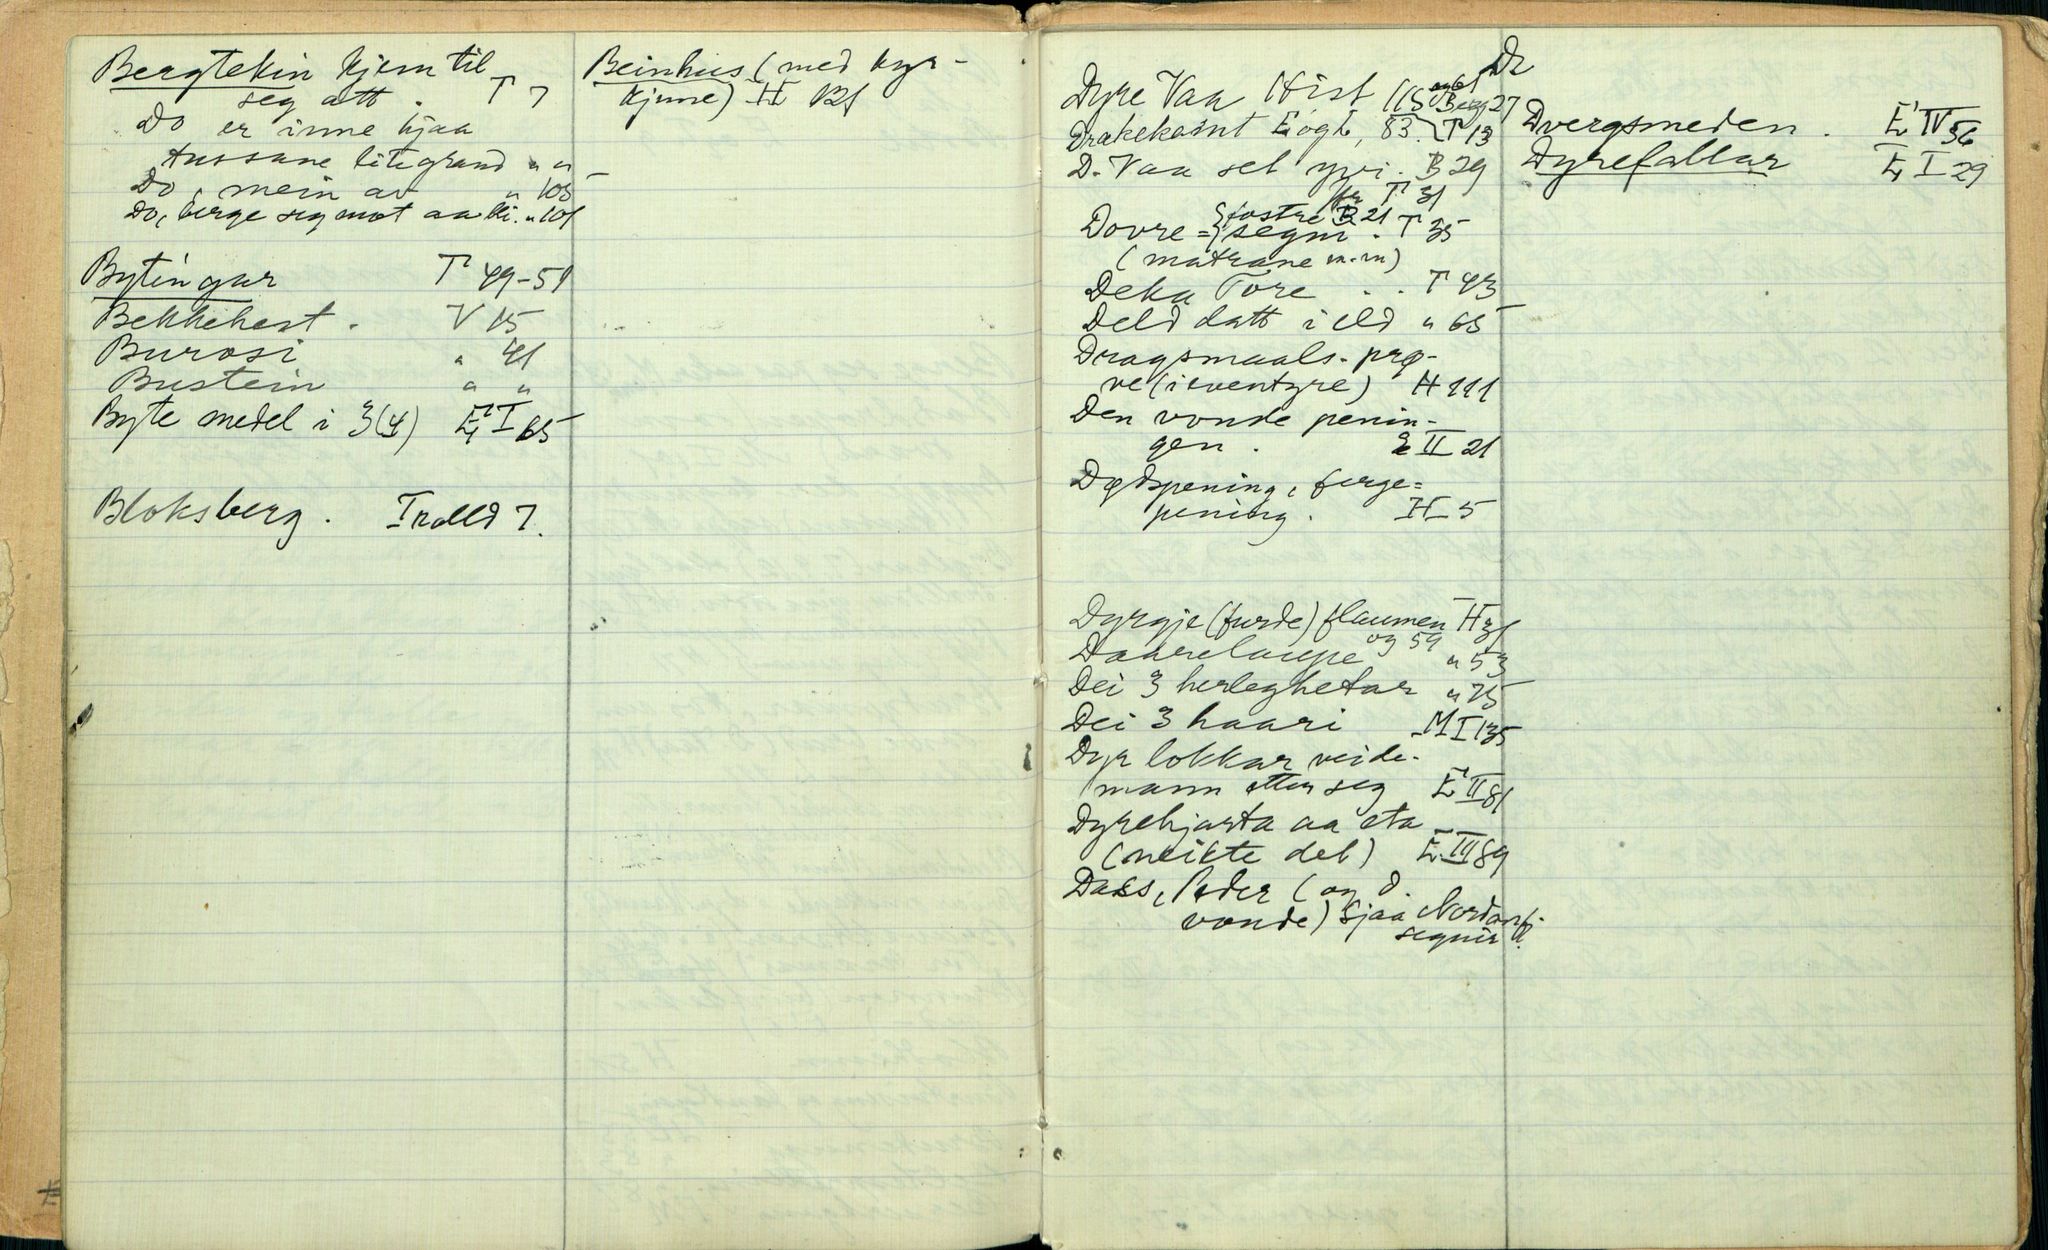 Bergtekin kjem til
seg att . T 7
Do er inne hjaa
tussane litegrand " "
Do, mein av " 105
Do, berge seg mot aa bli. " 101
Bytingar T 49-51
Bekkehest . V 15
Burosi " 41
Bustein " "
Byte medel i 3(4) E I 65
Bloksberg . Trolld 7.
Beinhus (med kyr-
kjune) H 121
Dyre Vaa Hist 115 og 61 Beg 27
Drakekamt E og L, 83. T 13
D. Vaa sel yvi. B 29
T 31
Dovre = { fostre B 21
segni . T 35
(matrane m.m)
Deka Tore . . T 43
Deld datt i eld " 65
Dragsmaals-prø-
ve (i eventyre) H 111
Den vonde penin-
gen . E II 21
Dødspening, ferge=
pening . H 5
Dyrgje (furde) flaumen H 31
Daarelaupe og 59 " 53
Dei 3 herleghetar " 75
Dei 3 haari M I 135
Dyr lokkar veide-
mann etter seg E II 81
Dyrehjarta aa eta
(neikte det) E III 89
Dass, Peder (og d.
vonde) Sjaa Nordanfj.
segnir
D
Dvergsmeden . E IV 56
Dyrefallar E I 29